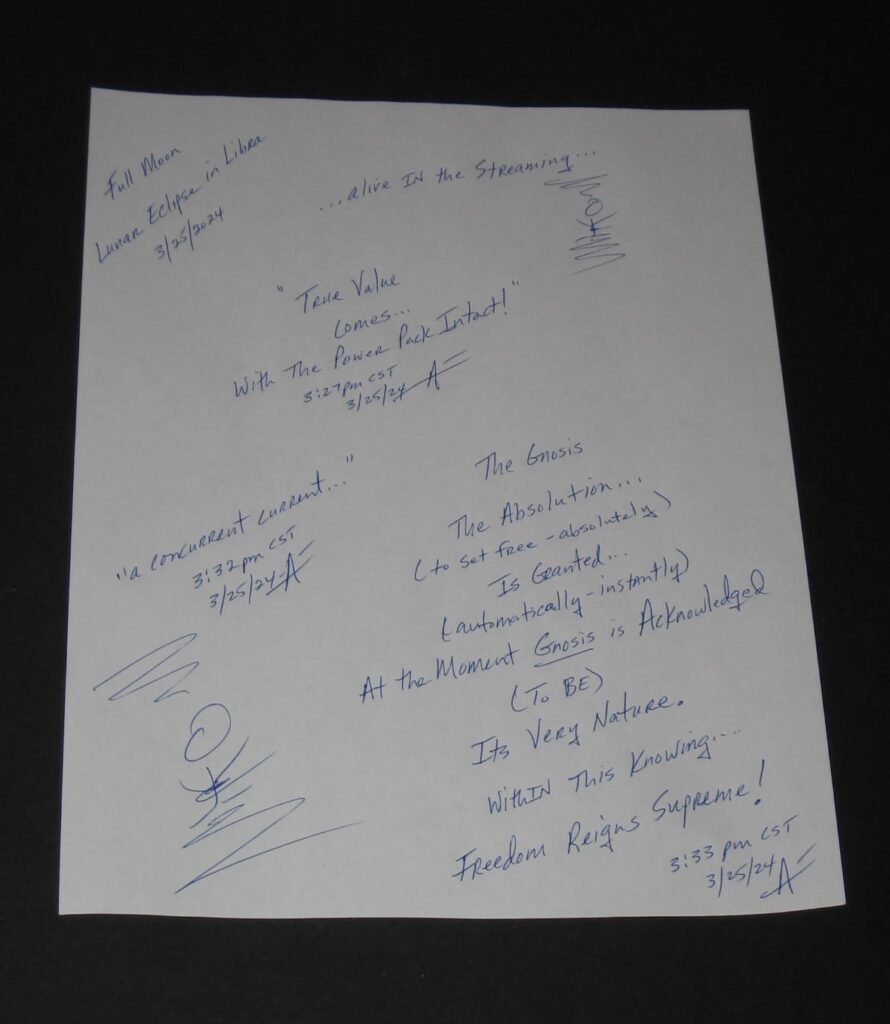 Full Moon
Lunar Eclipse in Libra
3/25/2024
...alive IN the Streaming...
"True Value
Comes...
With The Power Pack Intact!"
3:27pm CST
3/25/24 A
"a concurrent current..."
3:32pm CST
3/25/24 A
The Gnosis
The Absolution...
(to set free-absolutely)
Is Granted...
(automatically-instantly)
At the Moment Gnosis is Acknowledged
(To BE)
Its Very Nature.
WithIN This Knowing...
Freedom Reigns Supreme!
3:33 pm CST
3/25/24 A